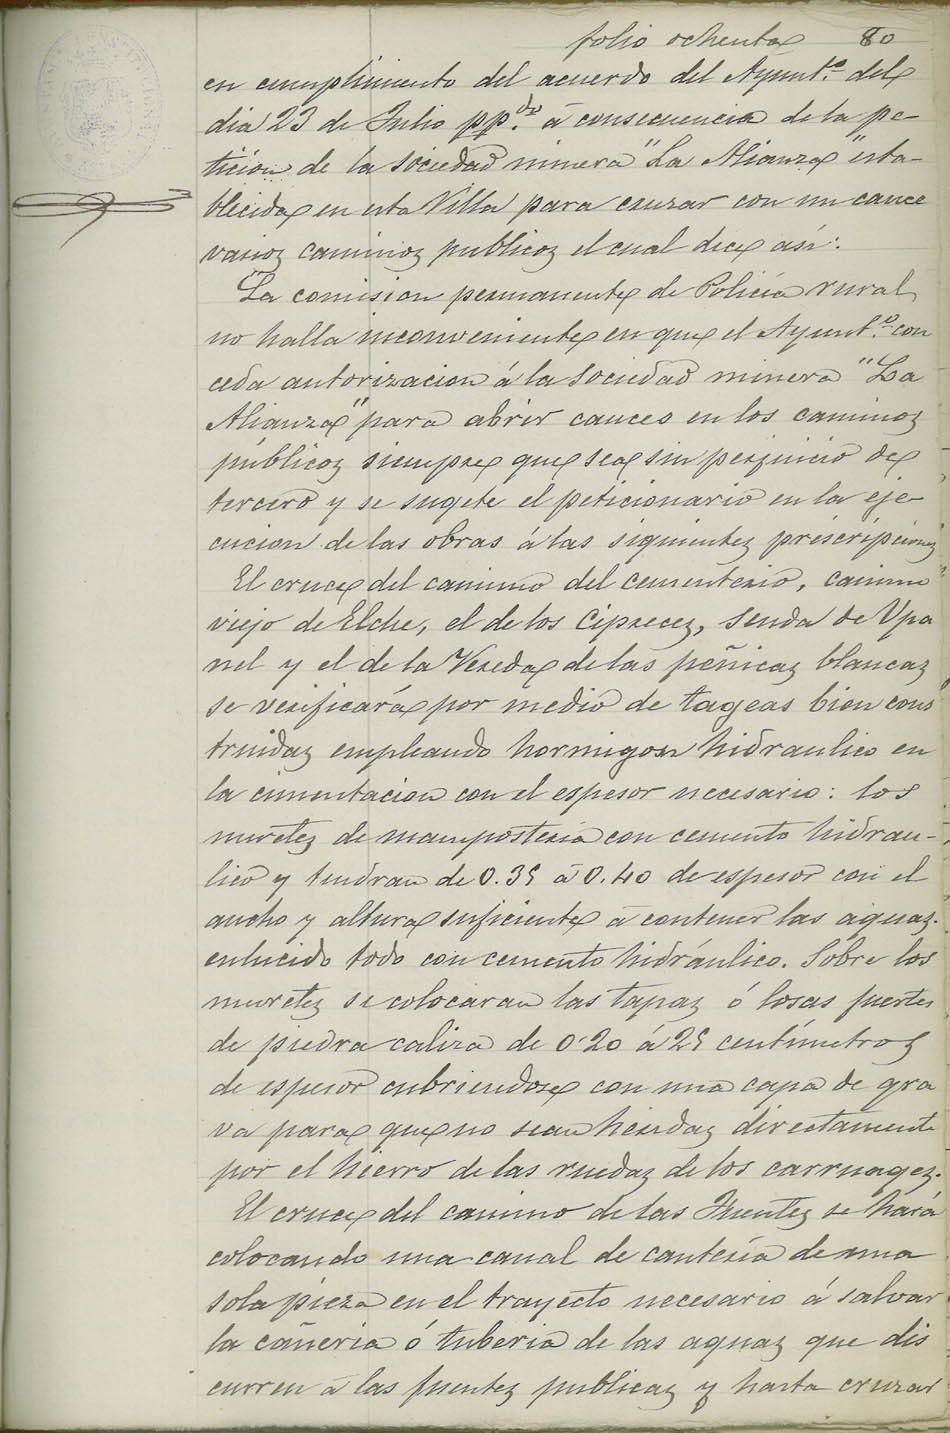 folio ochenta 80
en cumplimiento del acuerdo del Ayunt.º del
dia 23 de Julio pp.do á consecuencia de la pe-
tición de la sociedad minera "La Alianza" esta-
blecida en esta Villa para cruzar con un cauce
varios caminos publicos el cual dice así:
La comision permanente de Policía rural
no halla inconveniente en que el Ayunt.º con
ceda autorizacion á la sociedad minera "La
Alianza" para abrir cauces en los caminos
públicos siempre que sea sin perjuicio de
tercero y se sugete el peticionario en la eje-
cucion de las obras á las siguientes prescripciones
El cruce del camino del cementerio, camino
viejo de Elche, el de los Cipreces, Senda de Upa
nel y el de la Vereda de las peñicas blancas
se verificará por medio de tageas bien cons
truidas empleando hormigon hidraulico en
la cimentacion con el espesor necesario: los
muretes de mamposteria con cemento hidrau-
lico y tendran de 0.35 á 0.40 de espesor con el
ancho y altura suficiente á contener las aguas.
enlucido todo con cemento hidráulico. Sobre los
muretes se colocaran las tapas ó losas fuertes
de piedra caliza de 0'20 á 25 centímetros
de espesor cubriendose con una capa de gra
va para que no sean heridas directamente
por el hierro de las ruedas de los carruages.
El cruce del camino de las Fuentes se hará
colocando una canal de cantería de una
sola pieza en el trayecto necesario á salvar
la cañeria ó tuberia de las aguas que dis
curren á las fuentes publicas y hasta cruzar